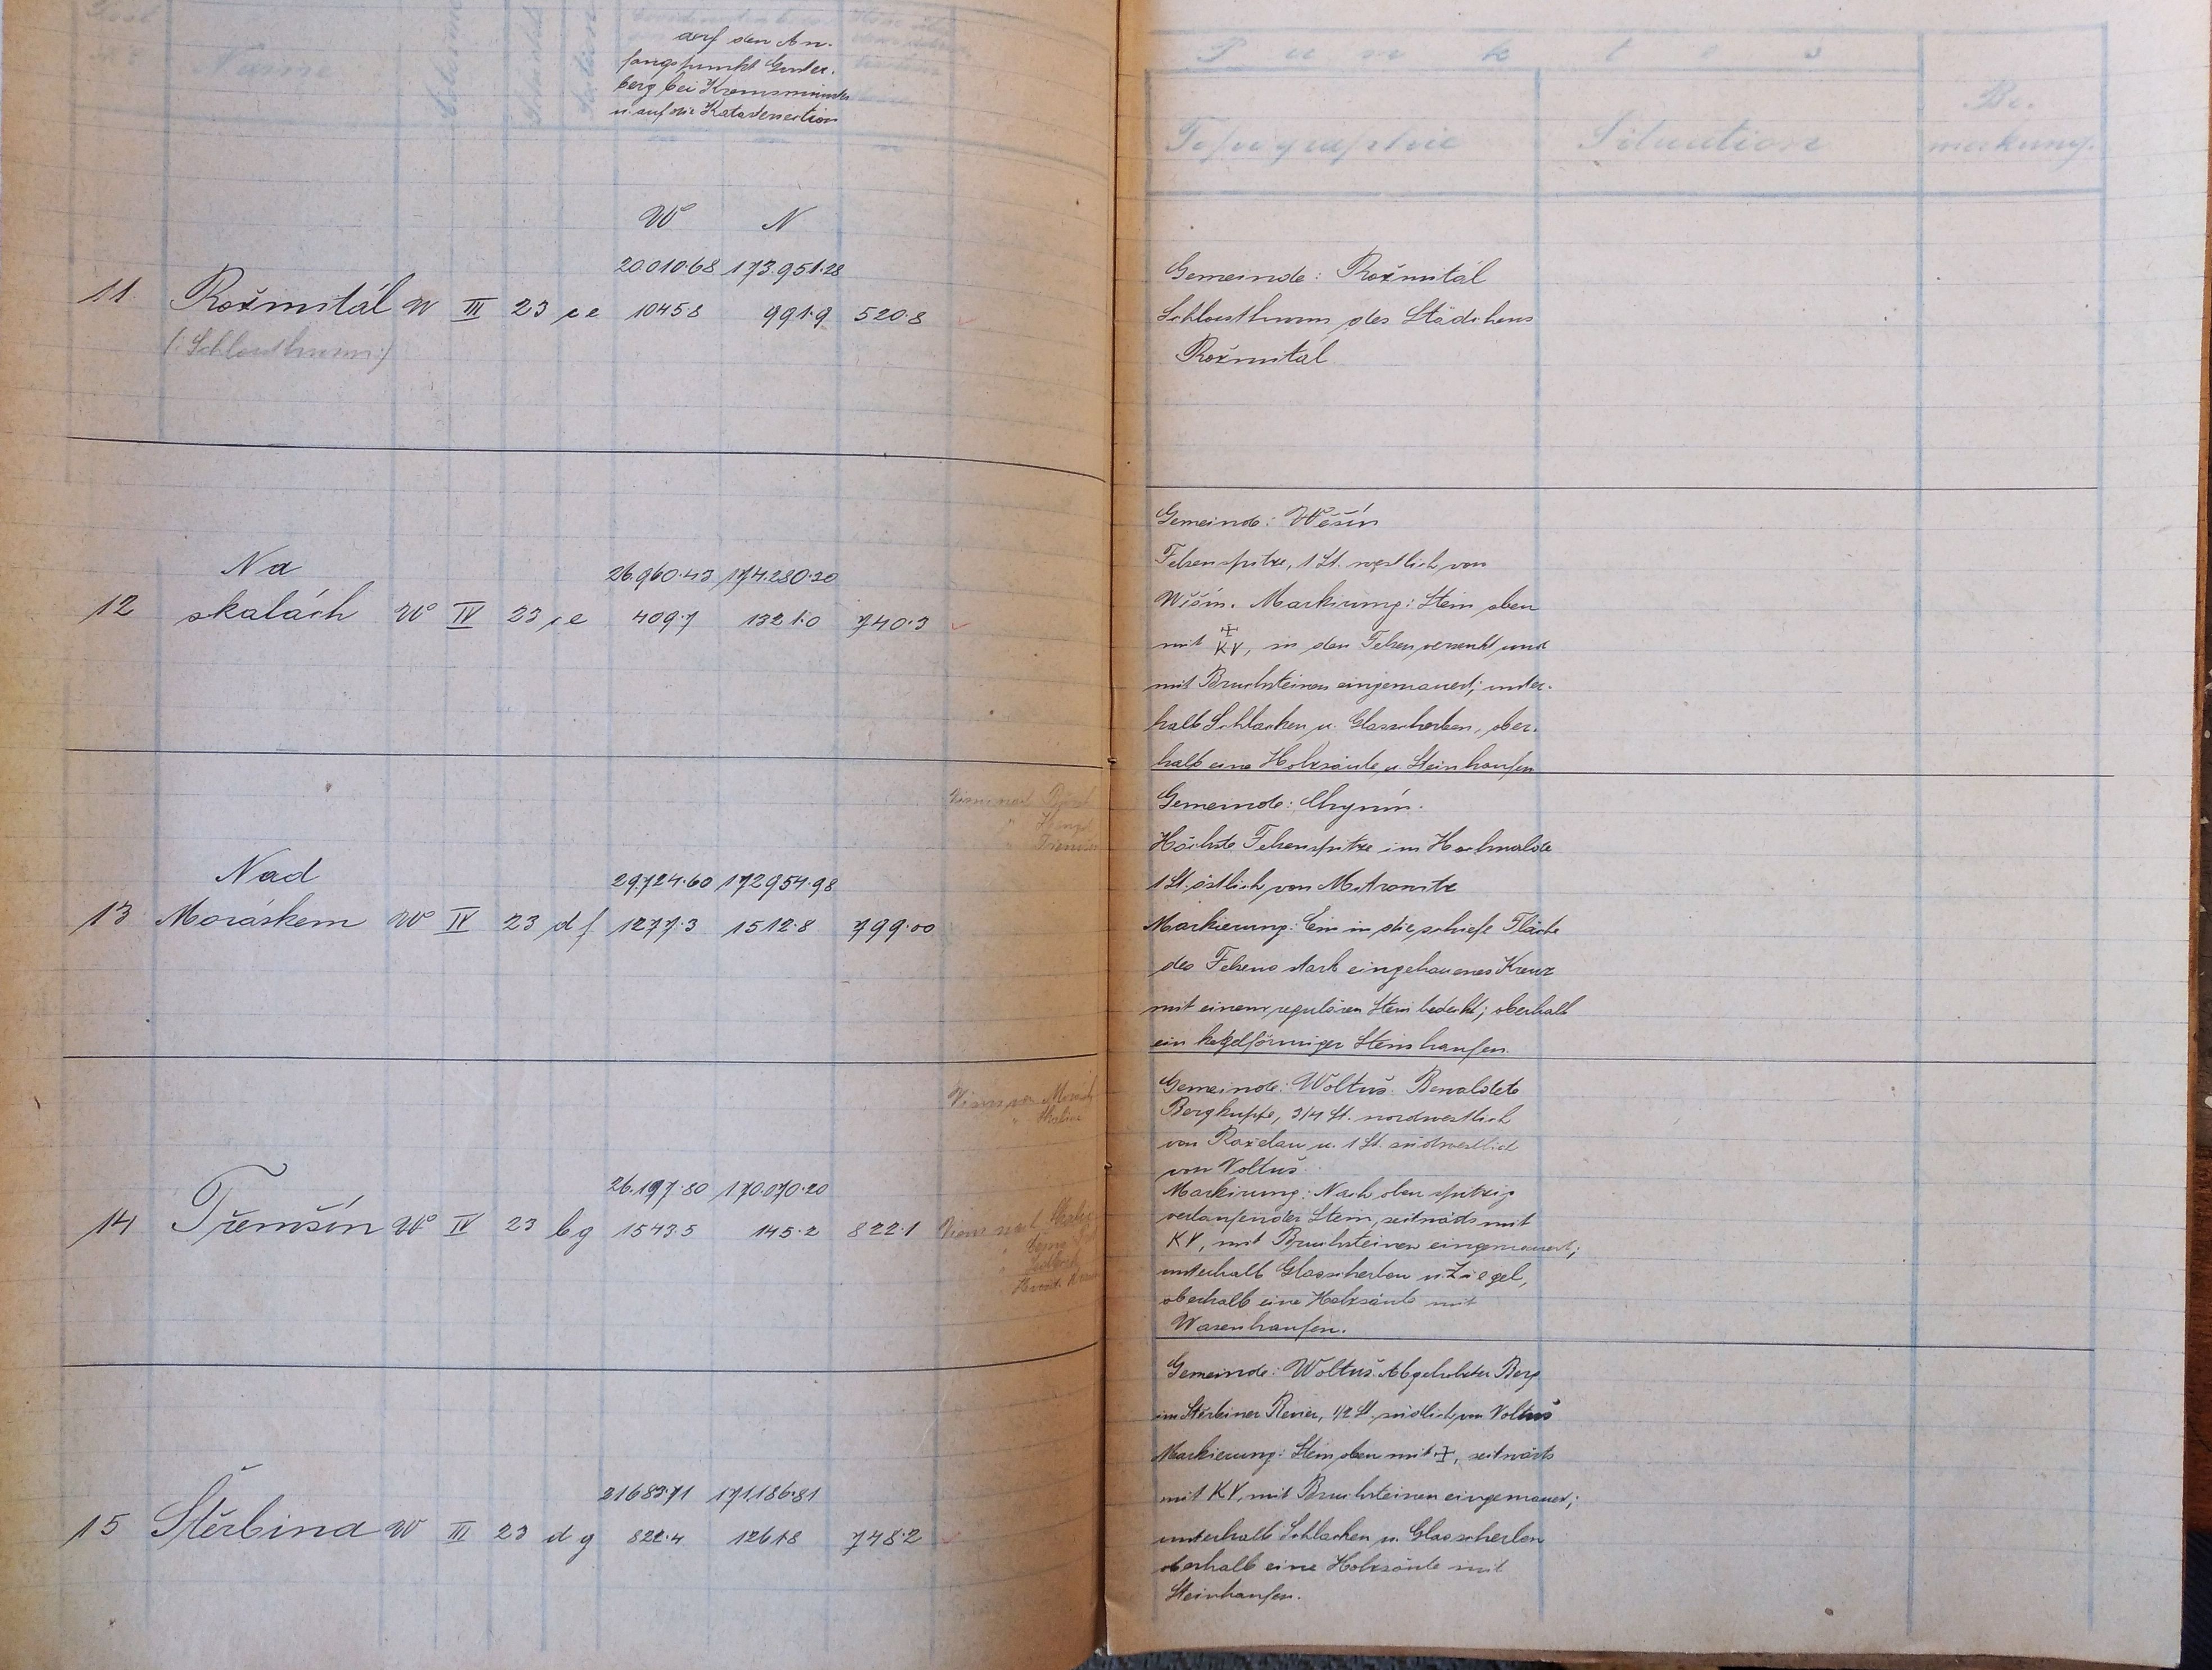 Name
auf den An-
fangspunkt Guster-
berg bei Kremsmünster
u. auf die Katastersection
W N
20.010.68 173.951.28
11. Rožmitál W III 23 c e 1045.8 991.9 520.8
(: Schlossthurm :)
Na
26.960.43 174.280.20
12 skalách W IV 23 c e 409.7 1321.0 740.3
Nad
29.724.60 172954.98
13 Moráskem W IV 23 d f 1277.3 1512.8 799.00
26.197.80 170.070.20
14 Třemšín W IV 23 b g 1543.5 145.2 822.1
21683.71 171.186.81
15 Štěrbina W III 23 d g 822.4 1261.8 748.2
Punktes
Topographie Situation Be-
merkung.
Gemeinde: Rožmitál
Schlossthurm des Städchens
Rožmitál
Gemeinde: Wěšín
Felsenspitze, 1 St. westlich von
Wěšín. Markirung: Stein oben
mit + KV, in den Felsen versenkt und
mit Bruchsteinen eingemauert; unter-
halb Schlacken u. Glasscherben, ober-
halb eine Holzsäule u. Steinhaufen
Gemeinde: Chynín.
Höchste Felsenspitze im Hochwalde
1 St. östlich von Mitrowitz
Markierung: Ein in die schiefe Fläche
des Felsens stark eingehauenes Kreuz
mit einem regulären Stein bedeckt; oberhalb
ein kegelförmiger Steinhaufen.
Gemeinde: Woltuš. Bewaldete
Bergkuppe, 3/4 St. nordwestlich
von Roželau u. 1 St. südwestlich
von Voltuš.
Markirung: Nach oben spitzig
verlaufender Stein, seitwärts mit
KV, mit Bruchsteinen eingemauert;
unterhalb Glasscherben u. Ziegel,
oberhalb eine Holzsäule mit
Wasenhaufen.
Gemeinde: Woltuš. Abgetriebener Berg
im Stěrbiner Revier, 1/2 St. südlich von Voltuš
Markierung: Stein oben mit +, seitwärts
mit KV, mit Bruchsteinen eingemauert;
unterhalb Schlacken u. Glasscherben
oberhalb eine Holzsäule mit
Steinhaufen.